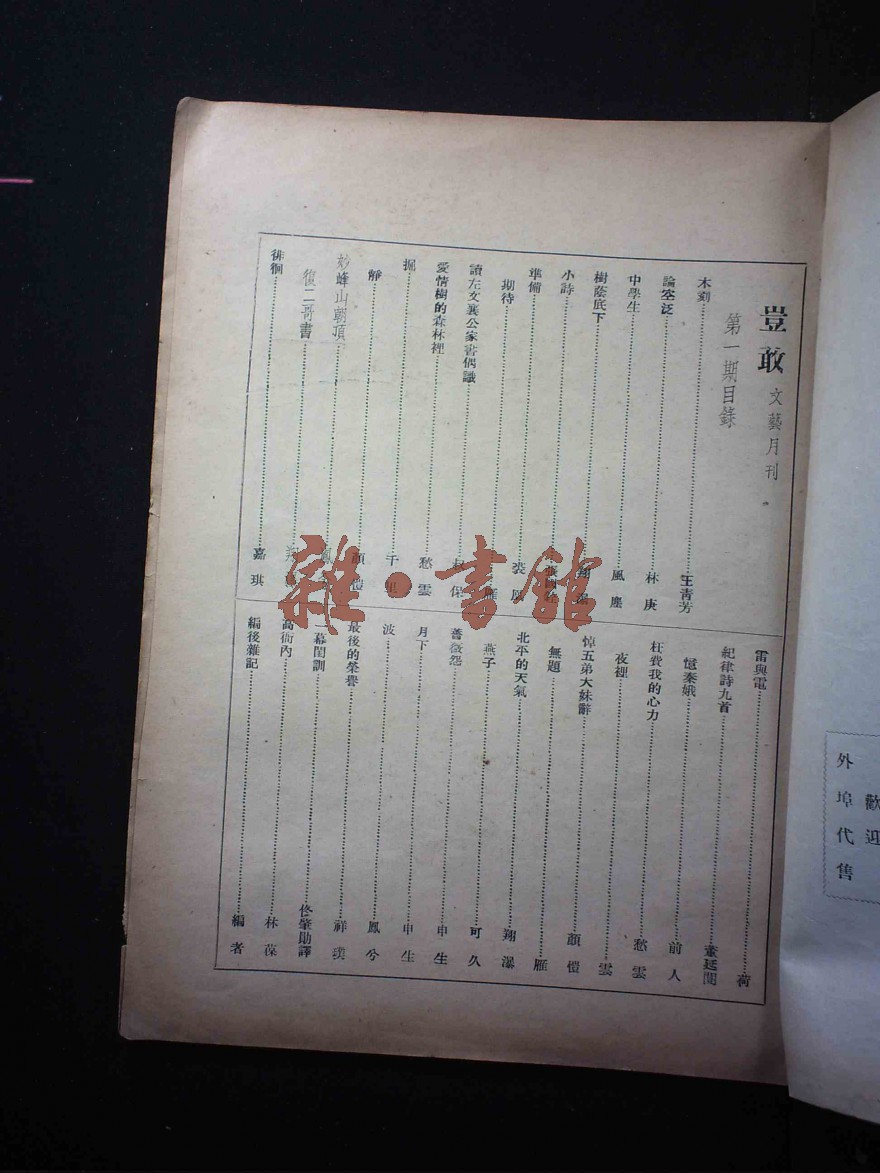 豈敢 文藝月刊
第一期目錄
木刻 王青芳
論空泛 林庚
中學生 風塵
樹蔭底下
小詩 翔瀑
準備
期待 裘
讀左文襄公家書偶識 保
愛情樹的森林裡 愁雲
掘 千
靜 顏愷
妙峰山朝頂 鳳
復二哥書
徘徊 嘉琪
雷與電 荷
紀律詩九首 董廷闓
憶秦娥 前人
枉費我的心力 愁雲
夜裡 雲
悼五弟大妹辭 顏愷
無題 雁
北平的天氣 翔瀑
燕子 可久
薔薇怨 申生
月下 申生
波 鳳兮
最後的榮譽 祥璞
一幕閨訓 佟肇勛譯
高衙內 林葆
編後雜記 編者
雜·書館
歡迎
外埠代售